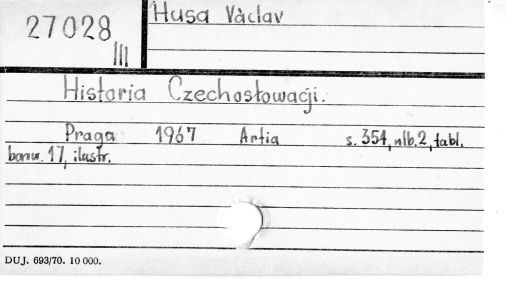 27028
III
Husa Vàclav
Historia Czechosłowacji.
Praga 1967 Artia s. 354, nlb. 2, tabl.
barw. 17, ilustr.
DUJ. 693/70. 10 000.